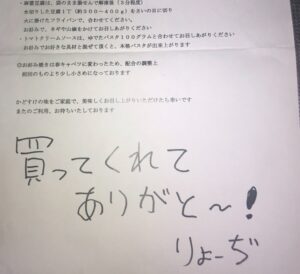 ・麻婆豆腐は、袋のまま湯せんで解凍後（５分程度）
水切りした豆腐１丁（約３００〜４００ｇ）むきいの目に切り
火に掛けたフライパンで、合わせてください。
お好みで、ネギや山椒をかけてお召しあがりください
・トマトクリームソースは、ゆでたパスタ１００グラムと合わせてお召しあがりください
お好みでお好きな具材と混ぜて頂くと、本格パスタが出来上がります
◎お好み焼きは春キャベツに変わったため、配合の調整上
前回のものより少し小さめになっております
かどすけの味をご家庭で、美味しくお召し上がりいただけたら幸いです
またのご利用、お待ちいたしております
買ってくれて
ありがと〜！
りょーぢ